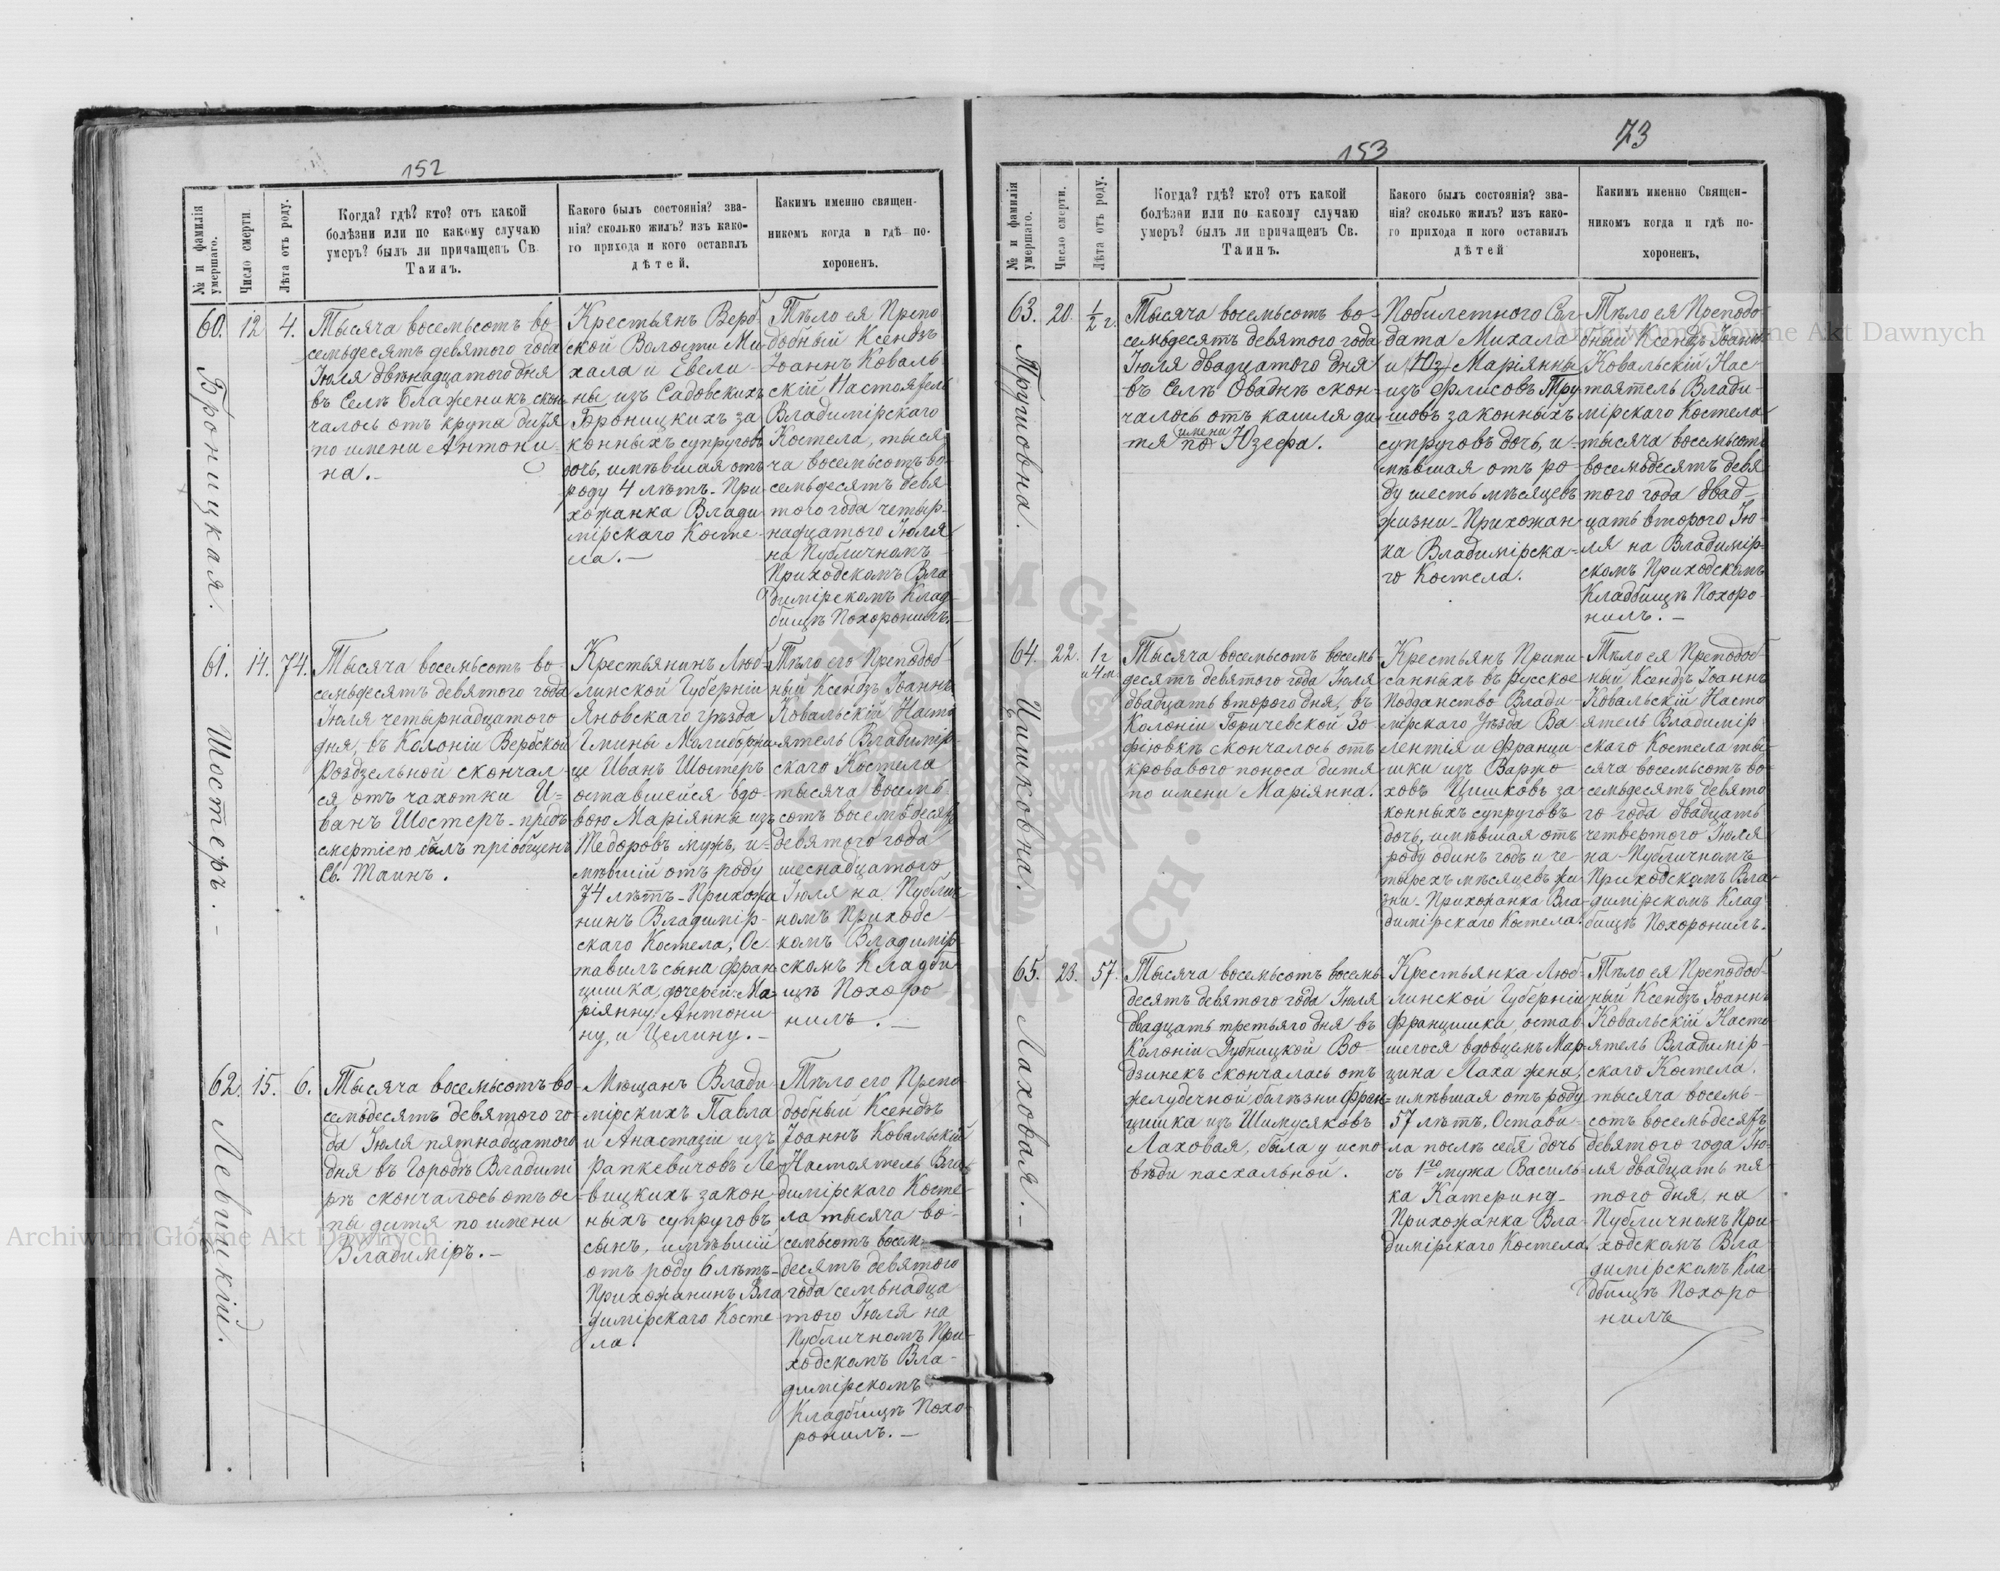 152
№ и фамилія умершаго.
Число смерти.
Лѣта отъ роду.
Когда? гдѣ? кто? отъ какой
болѣзни или по какому случаю
умеръ? былъ ли причащенъ Св.
Таинъ.
Какого былъ состоянія? зва-
нія? сколько жилъ? изъ како-
го прихода и кого оставилъ
дѣтей.
Какимъ именно священ-
никомъ когда и гдѣ по-
хороненъ.
60.
Броницкая.
12
4.
Тысяча восемьсотъ во-
семьдесятъ девятого года
Іюля двѣнадцатого дня
въ Селѣ Блаженикъ скон
чалось отъ крупа дитя
по имени Антони-
на.-
Крестьянъ Верб-
ской Волости Ми-
хала и Евели-
ны изъ Садовскихъ
Броницкихъ за-
конныхъ супруговъ
дочь, имѣвшая отъ
роду 4 лѣтъ. При-
хожанка Влади
мірскаго Косте-
ла.-
Тѣло ея Препо
добный Ксендзъ
Іоаннъ Коваль-
скій Настоятель
Владимірскаго
Костела, тыся
ча восемьсотъ во-
семьдесятъ девя
того года четыр-
надцатого Іюля
на Публичномъ
Приходскомъ Вла
димірскомъ Клад-
бищѣ Похоронилъ.-
61.
Шостеръ.-
14.
74.
Тысяча восемьсотъ во-
семьдесятъ девятого года
Іюля четырнадцатого
дня, въ Колоніи Вербской
Роздзельной скончал-
ся отъ чахотки И-
ванъ Шостеръ - предъ
смертію былъ пріобщенъ
Св. Таинъ.
Крестьянинъ Люб-
линской Губерніи
Яновскаго Уѣзда
Гмины Молибор
це Иванъ Шостеръ
оставшейся вдо-
вою Маріянны изъ
Тедоровъ мужъ, и-
мѣвшій отъ роду
74 лѣтъ - Прихожа
нинъ Владимір-
скаго Костела, Ос-
тавилъ сына Фран
цишка, дочерей: Ма
ріянну, Антони-
ну, и Целину.-
Тѣло его Преподоб-
ный Ксендзъ Іоаннъ
Ковальскій Насто
ятель Владимір-
скаго Костела
тысяча восемь-
сотъ восемьдесятъ
девятого года
шеснадцатого
Іюля на Публич
номъ Приходс-
комъ Владимір-
скомъ Кладби-
щѣ Похоро
нилъ.-
62.
Левицкій.
15.
6.
Тысяча восемьсотъ во
семьдесятъ девятого го-
да Іюля пятнадцатого
дня въ Городѣ Владими
рѣ скончалось отъ ос-
пы дитя по имени
Владиміръ.-
Мѣщанъ Влади-
мірскихъ Павла
и Анастазіи изъ
Рапкевичовъ Ле-
вицкихъ закон-
ныхъ супруговъ
сынъ, имѣвшій
отъ роду 6 лѣтъ-
Прихожанинъ Вла
димірскаго Косте
ла.
Тѣло его Препо
добный Ксендзъ
Іоаннъ Ковальскій
Настоятель Вла-
димірскаго Косте-
ла тысяча во-
семьсотъ восемь
десятъ девятого
года семнадца
того Іюля на
Публичномъ При-
ходскомъ Вла-
димірскомъ
Кладбищѣ Похо-
ронилъ.-
153
73
№ и фамилія умершаго.
Число смерти.
Лѣта отъ роду.
Когда? гдѣ? кто? отъ какой
болѣзни или по какому случаю
умеръ? былъ ли причащенъ Св.
Таинъ.
Какого былъ состоянія? зва-
нія? сколько жилъ? изъ како-
го прихода и кого оставилъ
дѣтей
Какимъ именно Священ-
никомъ когда и гдѣ по-
хороненъ.
63.
Тришовна.
20.
½ г.
Тысяча восемьсотъ во-
семьдесятъ девятого года
Іюля двадцатого дня
въ Селѣ Оваднѣ скон-
чалось отъ кашля ди
тя по имени Юзефа.
Побилетного Сол
дата Михала
и (Юз) Маріянны
изъ Флисовъ Тру
шовъ законныхъ
супруговъ дочь, и-
мѣвшая отъ ро-
ду шесть мѣсяцевъ
жизни - Прихожан
ка Владимірска-
го Костела.
Тѣло ея Преподо-
бный Ксендзъ Іоаннъ
Ковальскій Нас
тоятель Влади-
мірскаго Костела
тысяча восемьсотъ
восемьдесятъ девя
того года двад-
цать второго Ію-
ля на Владимір-
скомъ Приходскомъ
Кладбищѣ Похоро-
нилъ.-
64.
Цишковна.
22.
1 г и 4 м.
Тысяча восемьсотъ восемь-
десятъ девятого года Іюля
двадцать второго дня, въ
Колоніи Горичевской Зо-
фіювкѣ скончалось отъ
кроваваго поноса дитя
по имени Маріянна.
Крестьянъ Припи-
санныхъ въ русское
Подданство Влади-
мірскаго Уѣзда Ва-
лентія и Францы-
шки изъ Варжо
ховъ Цишковъ за
конныхъ супруговъ
дочь, имѣвшая отъ
роду одинъ годъ и че-
тырехъ мѣсяцевъ жи
зни - Прихожанка Вла-
димірскаго Костела.
Тѣло ея Преподоб-
ный Ксендзъ Іоаннъ
Ковальскій Насто-
ятель Владимір
скаго Костела ты-
сяча восемьсотъ во-
семьдесятъ девято
го года двадцать
четвертого Іюля
на Публичномъ
Приходскомъ Вла-
димірскомъ Клад
бищѣ Похоронилъ.
65.
Лаховая.-
23.
57.
Тысяча восемьсотъ восемь-
десятъ девятого года Іюля
двадцать третьяго дня въ
Колоніи Дубницкой Во-
дзинекъ скончалась отъ
желудочной болѣзни Фран-
цишка изъ Шимусяковъ
Лаховая, была у испо-
вѣди пасхальной.
Крестьянка Люб-
линской Губерніи
Францишка, остав-
шегося вдовцемъ Мар-
цина Лаха жена,
имѣвшая отъ роду
57 лѣтъ, Остави-
ла послѣ себя дочь
съ 1го мужа Василь-
ка Катерину-
Прихожанка Вла-
димірскаго Костела.
Тѣло ея Преподоб-
ный Ксендзъ Іоаннъ
Ковальскій Насто-
ятель Владимір-
скаго Костела.
тысяча восемь-
сотъ восемьдесятъ
девятого года Ію-
ля двадцать пя
того дня, на
Публичномъ При-
ходскомъ Вла-
димірскомъ Кла
дбищѣ Похоро
нилъ
Archiwum Główne Akt Dawnych
Archiwum Główne Akt Dawnych